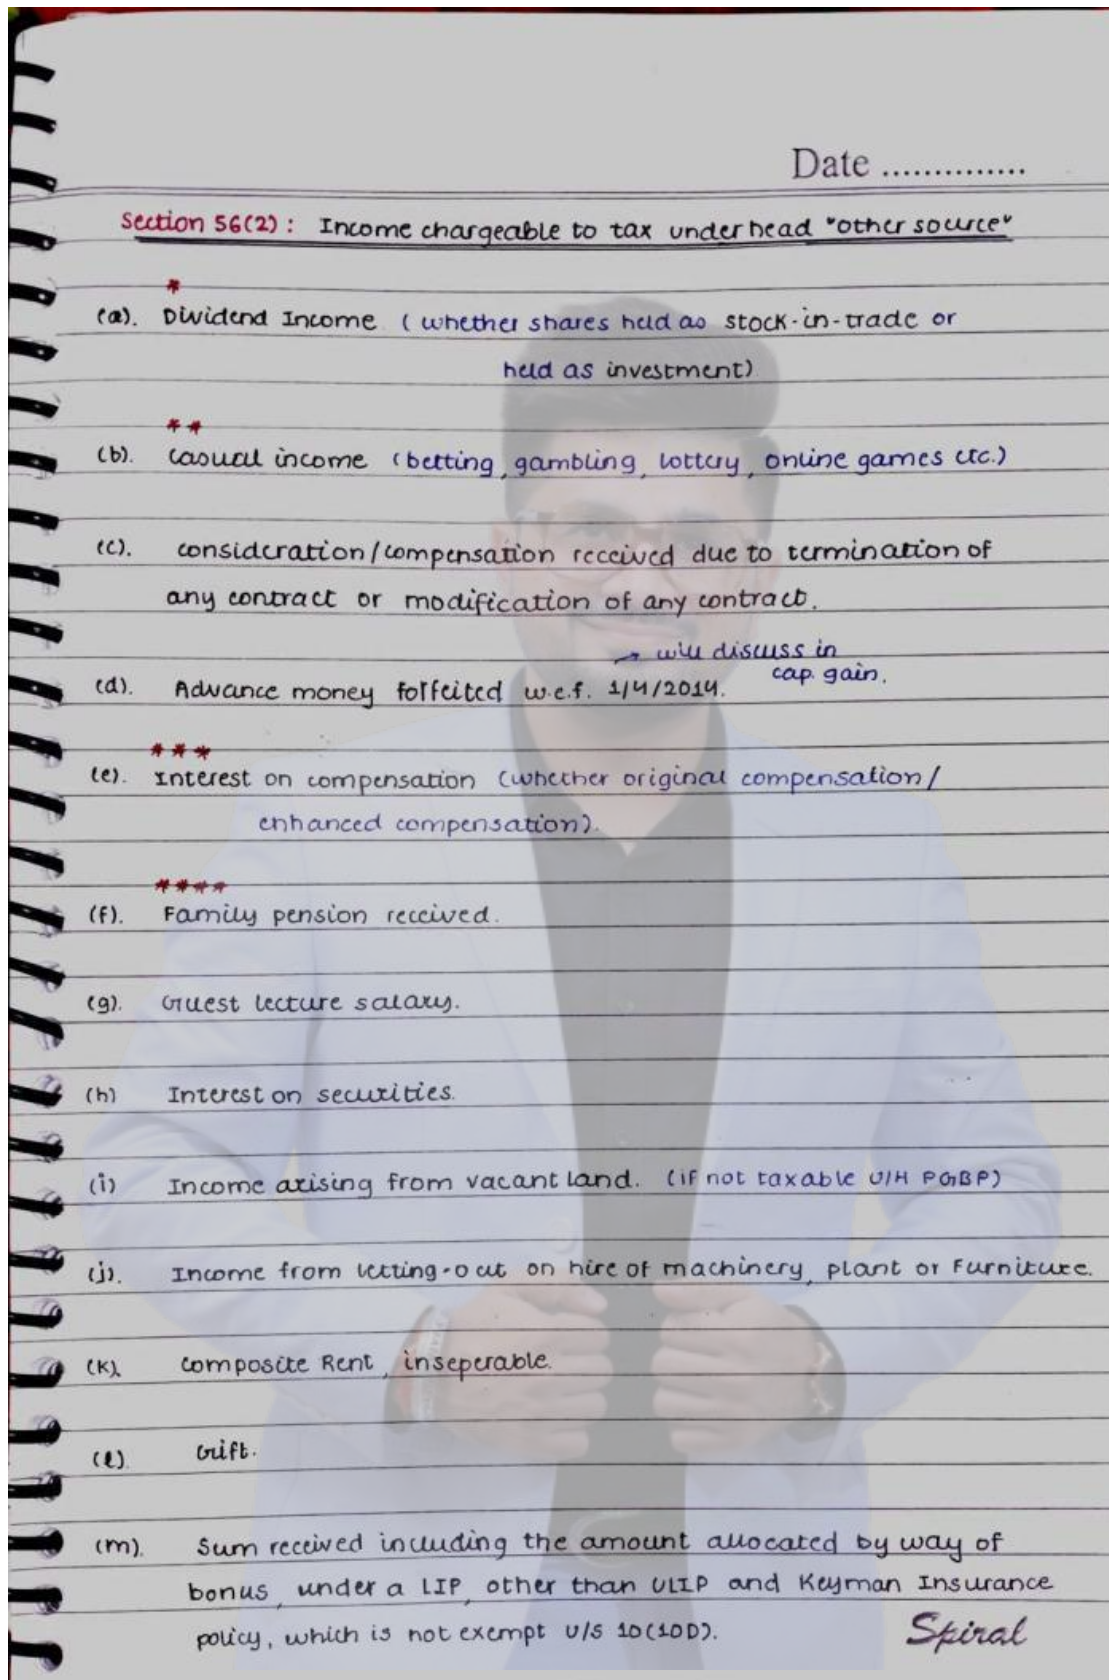 Date ..............
Section 56(2) : Income chargeable to tax under head "other source"
*
(a). Dividend Income (whether shares held as stock-in-trade or
held as investment)
**
(b). Casual income (betting, gambling, lottery, online games etc.)
(c). consideration/compensation received due to termination of
any contract or modification of any contract.
→ will discuss in
cap. gain.
(d). Advance money forfeited w.e.f. 1/4/2014.
***
(e). Interest on compensation (whether original compensation/
enhanced compensation).
****
(f). Family pension received.
(g). Guest lecture salary.
(h) Interest on securities.
(i) Income arising from vacant land. (if not taxable U/H PGBP)
(j). Income from letting-out on hire of machinery, plant or Furniture.
(k). Composite Rent, inseperable.
(l). Gift.
(m). Sum received including the amount allocated by way of
bonus, under a LIP, other than ULIP and Keyman Insurance
policy, which is not exempt U/S 10(10D).
Spiral